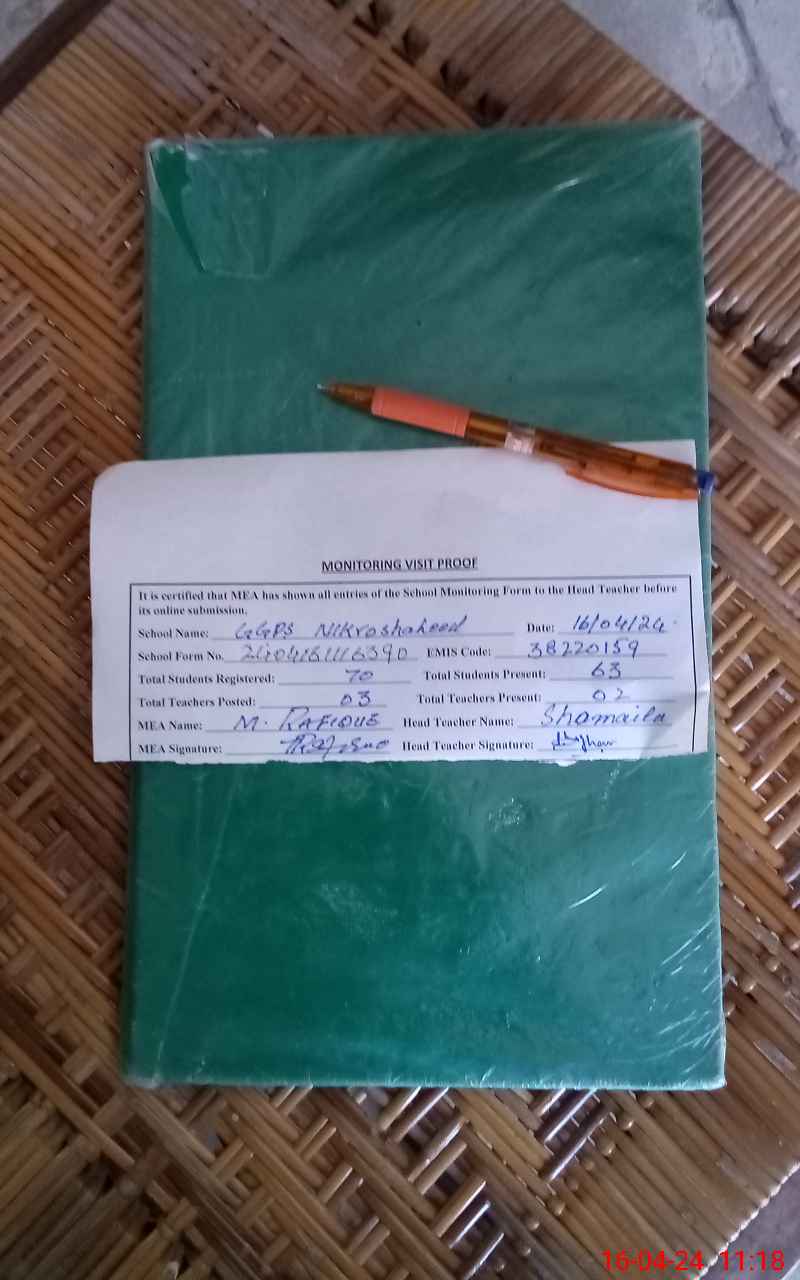 MONITORING VISIT PROOF
It is certified that MEA has shown all entries of the School Monitoring Form to the Head Teacher before
its online submission.
School Name: GGPS Nikroshaheed Date: 16/04/24
School Form No. EMIS Code: 38220159
Total Students Registered: 70 Total Students Present: 63
Total Teachers Posted: 03 Total Teachers Present: 02
MEA Name: M. RAFIQUE Head Teacher Name: Shamaila
MEA Signature: Head Teacher Signature:
16-04-24 11:18